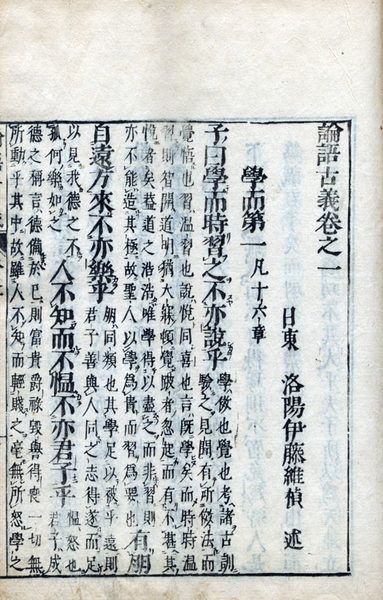 論語古義卷之一
日東 洛陽伊藤維楨 述
學而第一 凡十六章
子曰學而時習之不亦說乎 學倣也覺也考諸古訓
驗之見聞有所倣法而
覺悟也習溫習也說悅同喜也言既學矣而時時溫
習則智開道明猶大寐頓覺跛者忽起而有不堪其
悅者矣蓋道之浩浩唯學得以盡之而非習則
亦不能造其極故聖人以學爲貴而習爲要也 有朋
自遠方來不亦樂乎 朋同類也其學足以被乎遠則
君子善與人同之志得遂而足
以見我德之不
孤何樂如之 人不知而不慍不亦君子乎 慍怒也
君子成
德之稱言德備於己則富貴爵祿毀譽得喪一切無
所動乎其中故雖人不知而輕賤之毫無所怒學之